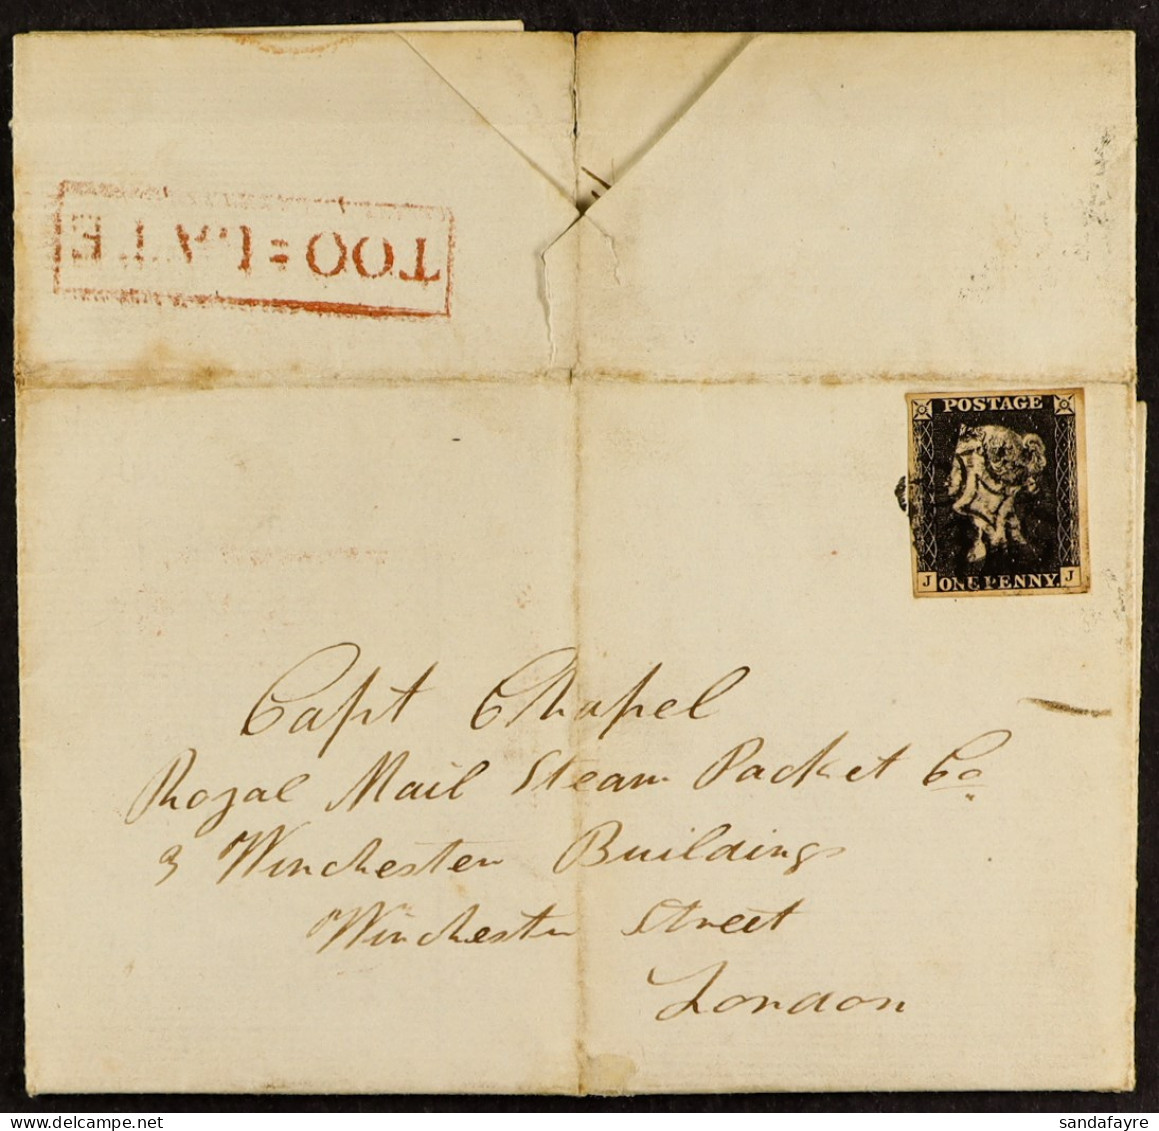 TOO=LATE
POSTAGE
J ONE PENNY. J
Capt Chapel
Royal Mail Steam Packet Co.
3 Winchester Buildings
Winchester Street
London
sandafayre